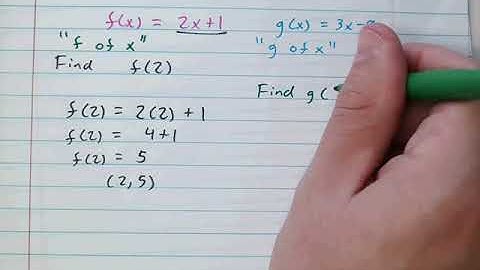 f(x) = 2x+1
"f of x"
Find f(2)
f(2) = 2(2) + 1
f(2) = 4+1
f(2) = 5
(2,5)
g(x) = 3x-
"g of x"
Find g(